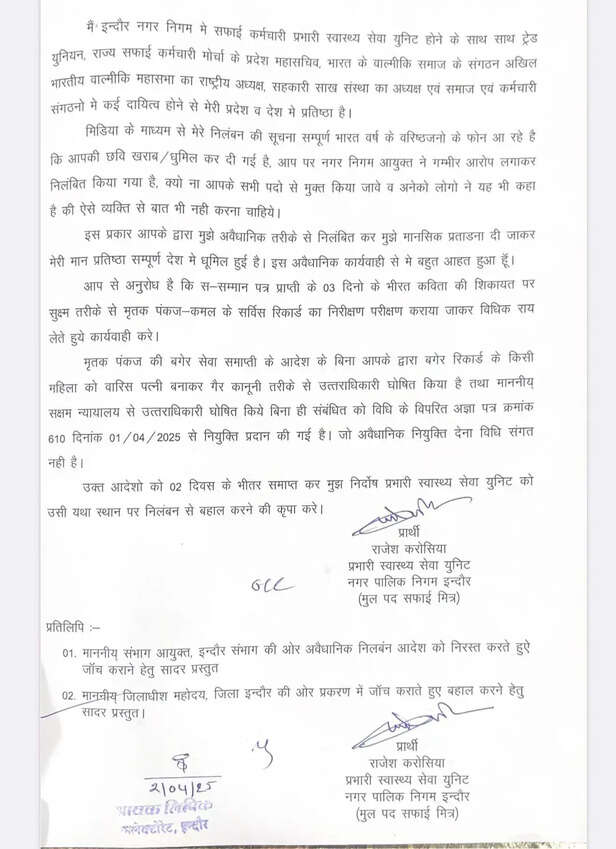 मैं इन्दौर नगर निगम मे सफाई कर्मचारी प्रभारी स्वास्थ्य सेवा युनिट होने के साथ साथ ट्रेड
युनियन, राज्य सफाई कर्मचारी मोर्चा के प्रदेश महासचिव, भारत के वाल्मीकि समाज के संगठन अखिल
भारतीय वाल्मीकि महासभा का राष्ट्रीय अध्यक्ष, सहकारी साख संस्था का अध्यक्ष एवं समाज एवं कर्मचारी
संगठनो मे कई दायित्व होने से मेरी प्रदेश व देश मे प्रतिष्ठा है।
मिडिया के माध्यम से मेरे निलंबन की सूचना सम्पूर्ण भारत वर्ष के वरिष्ठजनो के फोन आ रहे है
कि आपकी छवि खराब/धुमिल कर दी गई है, आप पर नगर निगम आयुक्त ने गम्भीर आरोप लगाकर
निलंबित किया गया है, क्यो ना आपके सभी पदो से मुक्त किया जावे व अनेको लोगो ने यह भी कहा
है की ऐसे व्यक्ति से बात भी नही करना चाहिये।
इस प्रकार आपके द्वारा मुझे अवैधानिक तरीके से निलंबित कर मुझे मानसिक प्रताडना दी जाकर
मेरी मान प्रतिष्ठा सम्पूर्ण देश मे धूमिल हुई है। इस अवैधानिक कार्यवाही से मे बहुत आहत हुआ हूँ।
आप से अनुरोध है कि स-सम्मान पत्र प्राप्ती के 03 दिनो के भीरत कविता की शिकायत पर
सुक्ष्म तरीके से मृतक पंकज-कमल के सर्विस रिकार्ड का निरीक्षण परीक्षण कराया जाकर विधिक राय
लेते हुये कार्यवाही करे।
मृतक पंकज की बगेर सेवा समाप्ती के आदेश के बिना आपके द्वारा बगेर रिकार्ड के किसी
महिला को वारिस पत्नी बनाकर गैर कानूनी तरीके से उत्तराधिकारी घोषित किया है तथा माननीय्
सक्षम न्यायालय से उत्तराधिकारी घोषित किये बिना ही संबंधित को विधि के विपरित अज्ञा पत्र क्रमांक
610 दिनांक 01/04/2025 से नियुक्ति प्रदान की गई है। जो अवैधानिक नियुक्ति देना विधि संगत
नही है।
उक्त आदेशो को 02 दिवस के भीतर समाप्त कर मुझ निर्दोष प्रभारी स्वास्थ्य सेवा युनिट को
उसी यथा स्थान पर निलंबन से बहाल करने की कृपा करे।
प्रार्थी
राजेश करोसिया
प्रभारी स्वास्थ्य सेवा युनिट
नगर पालिक निगम इन्दौर
(मुल पद सफाई मित्र)
प्रतिलिपि :–
01. माननीय् संभाग आयुक्त, इन्दौर संभाग की ओर अवैधानिक निलबंन आदेश को निरस्त करते हुऐ
जाँच कराने हेतु सादर प्रस्तुत
02. माननीय् जिलाधीश महोदय, जिला इन्दौर की ओर प्रकरण में जाँच कराते हुए बहाल करने हेतु
सादर प्रस्तुत।
प्रार्थी
राजेश करोसिया
प्रभारी स्वास्थ्य सेवा युनिट
नगर पालिक निगम इन्दौर
(मुल पद सफाई मित्र)
2/04/25
कलेक्टोरेट, इन्दौर